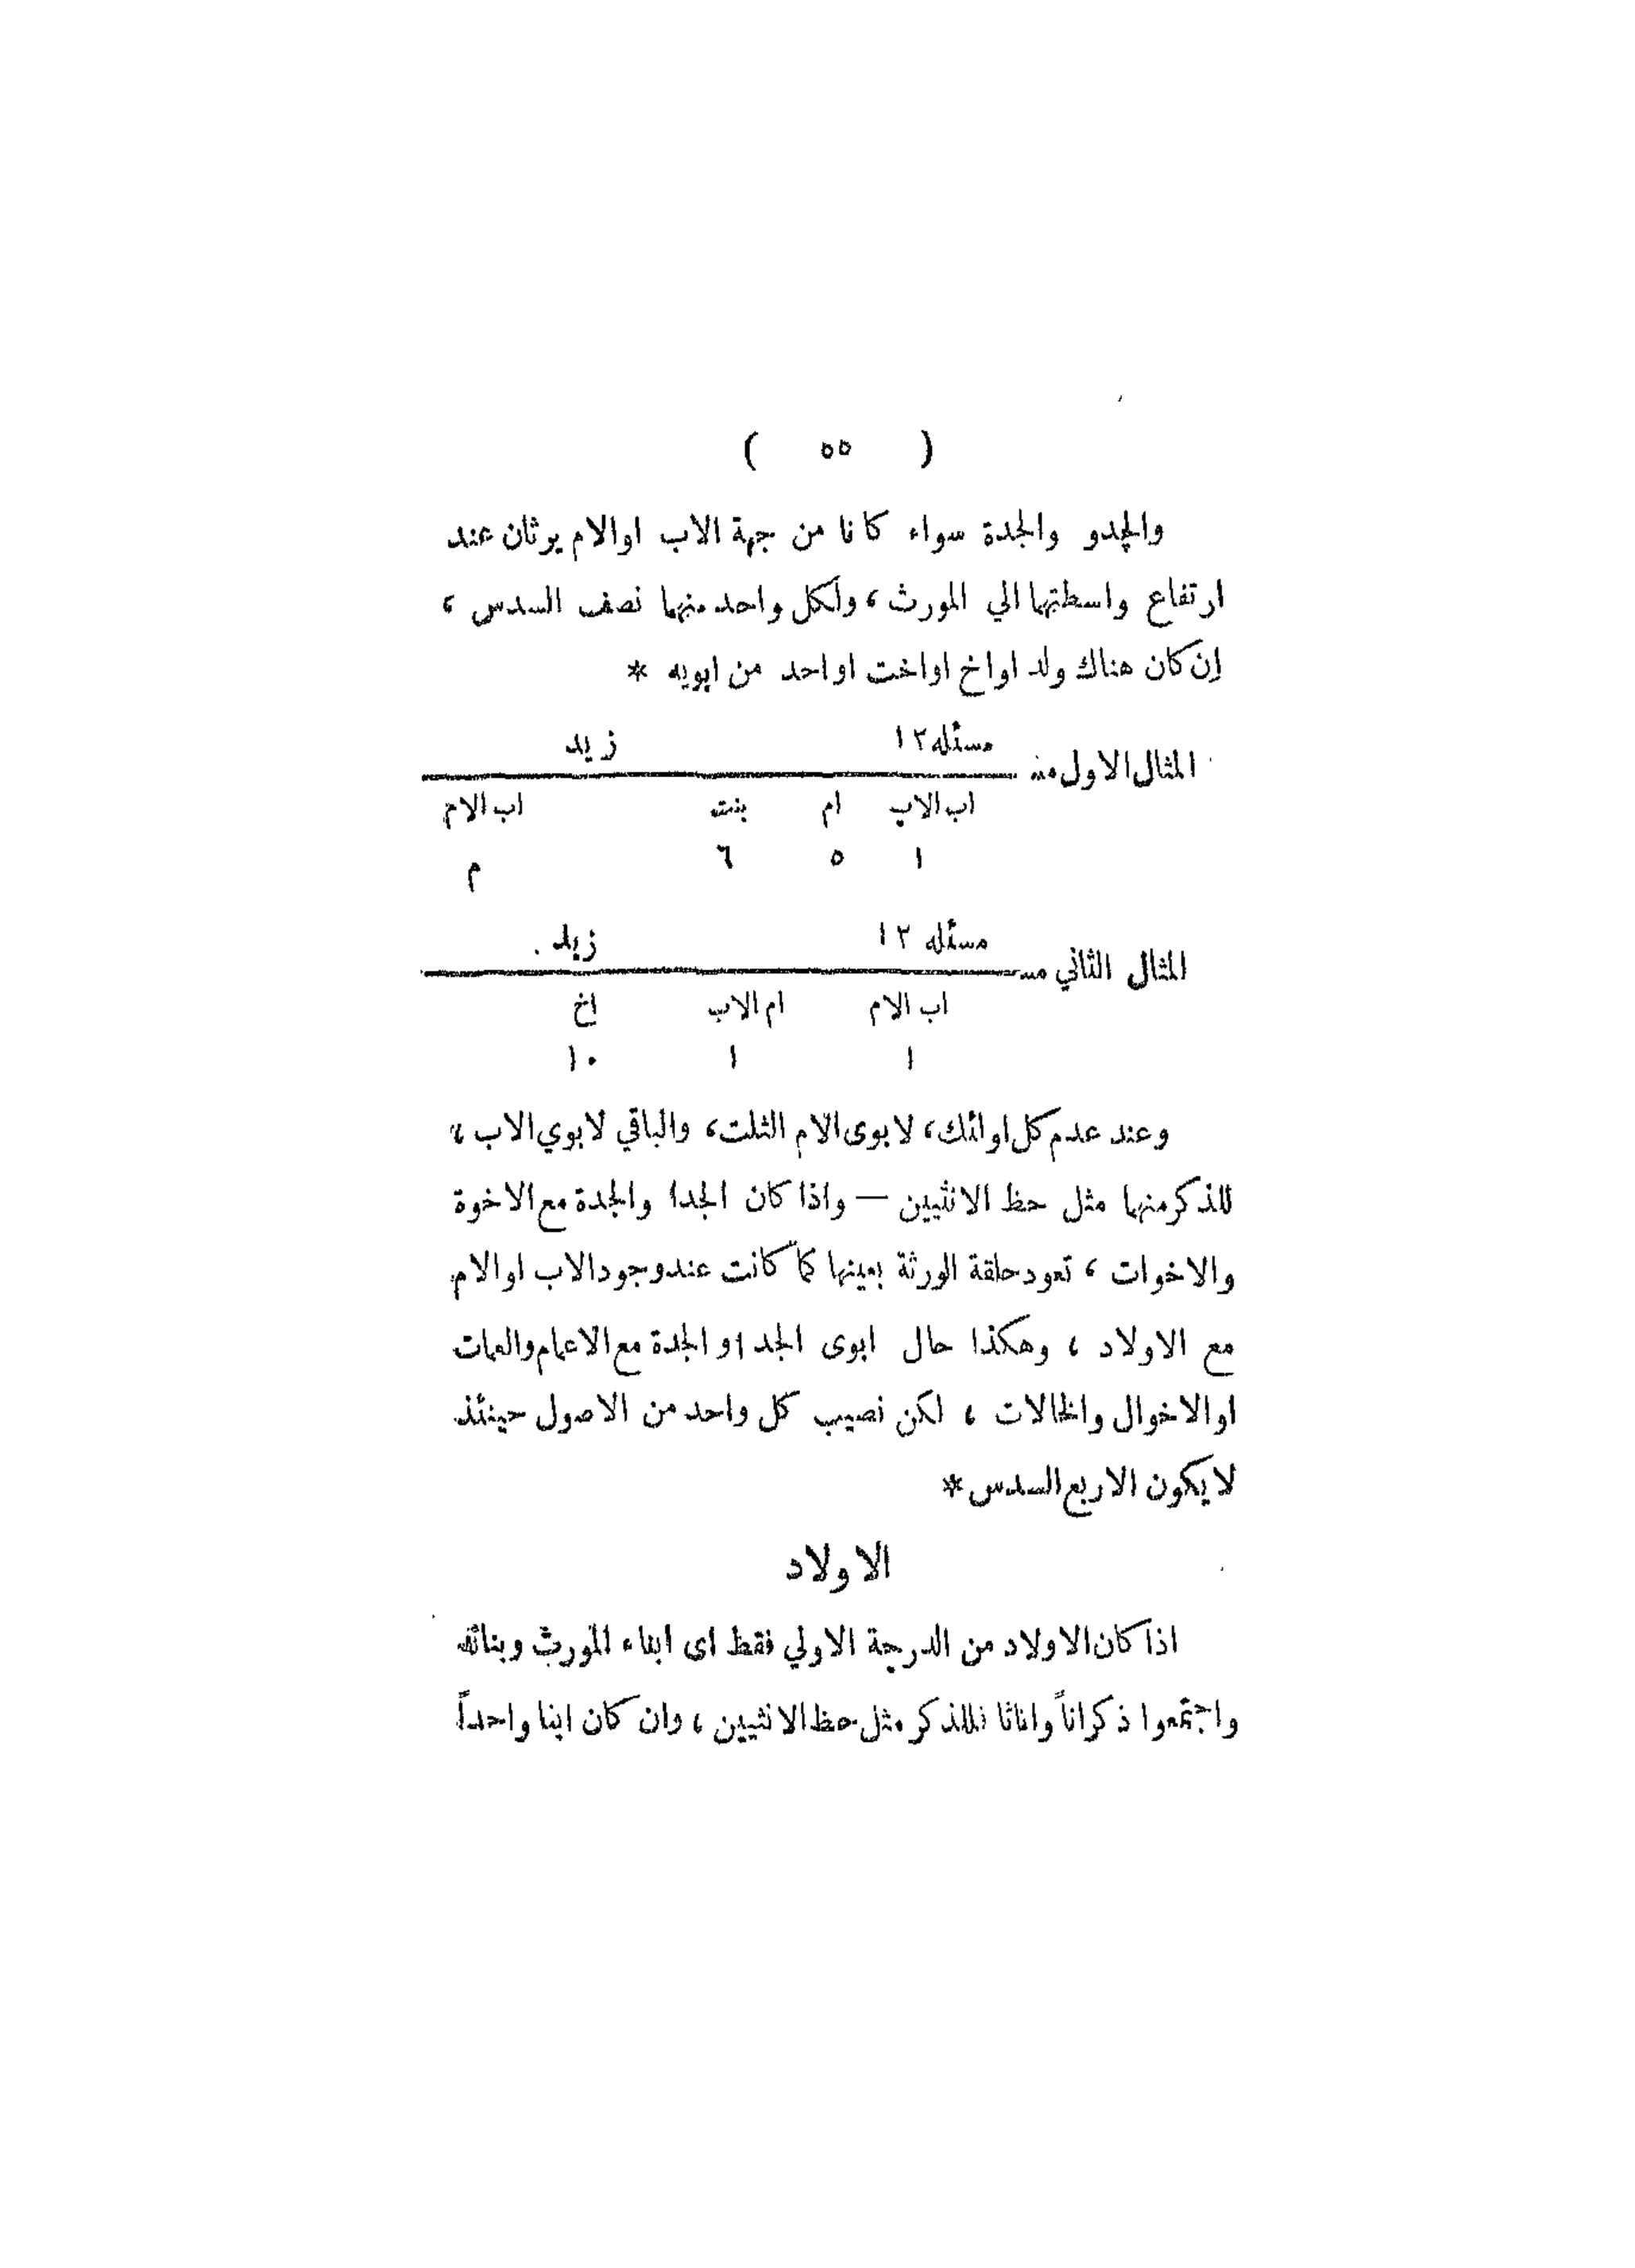 ( ٥٥ )
والجدو والجدة سواء كانا من جهة الاب اوالام يرثان عند
ارتفاع واسطتهما الي المورث ، ولكل واحد منهما نصف السدس ،
إن كان هناك ولد اواخ اواخت او احد من ابويه *
المثال الاول مسئله ١٢ زيد
اب الاب ام بنت اب الام
١ ٥ ٦ م
المثال الثاني مسئله ١٢ زيد
اب الام ام الاب اخ
١ ١ ١٠
وعند عدم كل اولئك ، لابوى الام الثلت ، والباقي لابوي الاب ،
للذكر منهما مثل حظ الانثيين — واذا كان الجدا والجدة مع الاخوة
والاخوات ، تعود حلقة الورثة بعينها كما كانت عند وجود الاب اوالام
مع الاولاد ، وهكذا حال ابوى الجد او الجدة مع الاعمام والعمات
اوالاخوال والخالات ، لكن نصيب كل واحد من الاصول حينئذ
لا يكون الاربع السدس *
الاولاد
اذا كان الاولاد من الدرجة الاولي فقط اى ابناء المورث وبناته
واجتمعوا ذكراناً واناثا فللذكر مثل حظ الانثيين ، وان كان ابنا واحداً